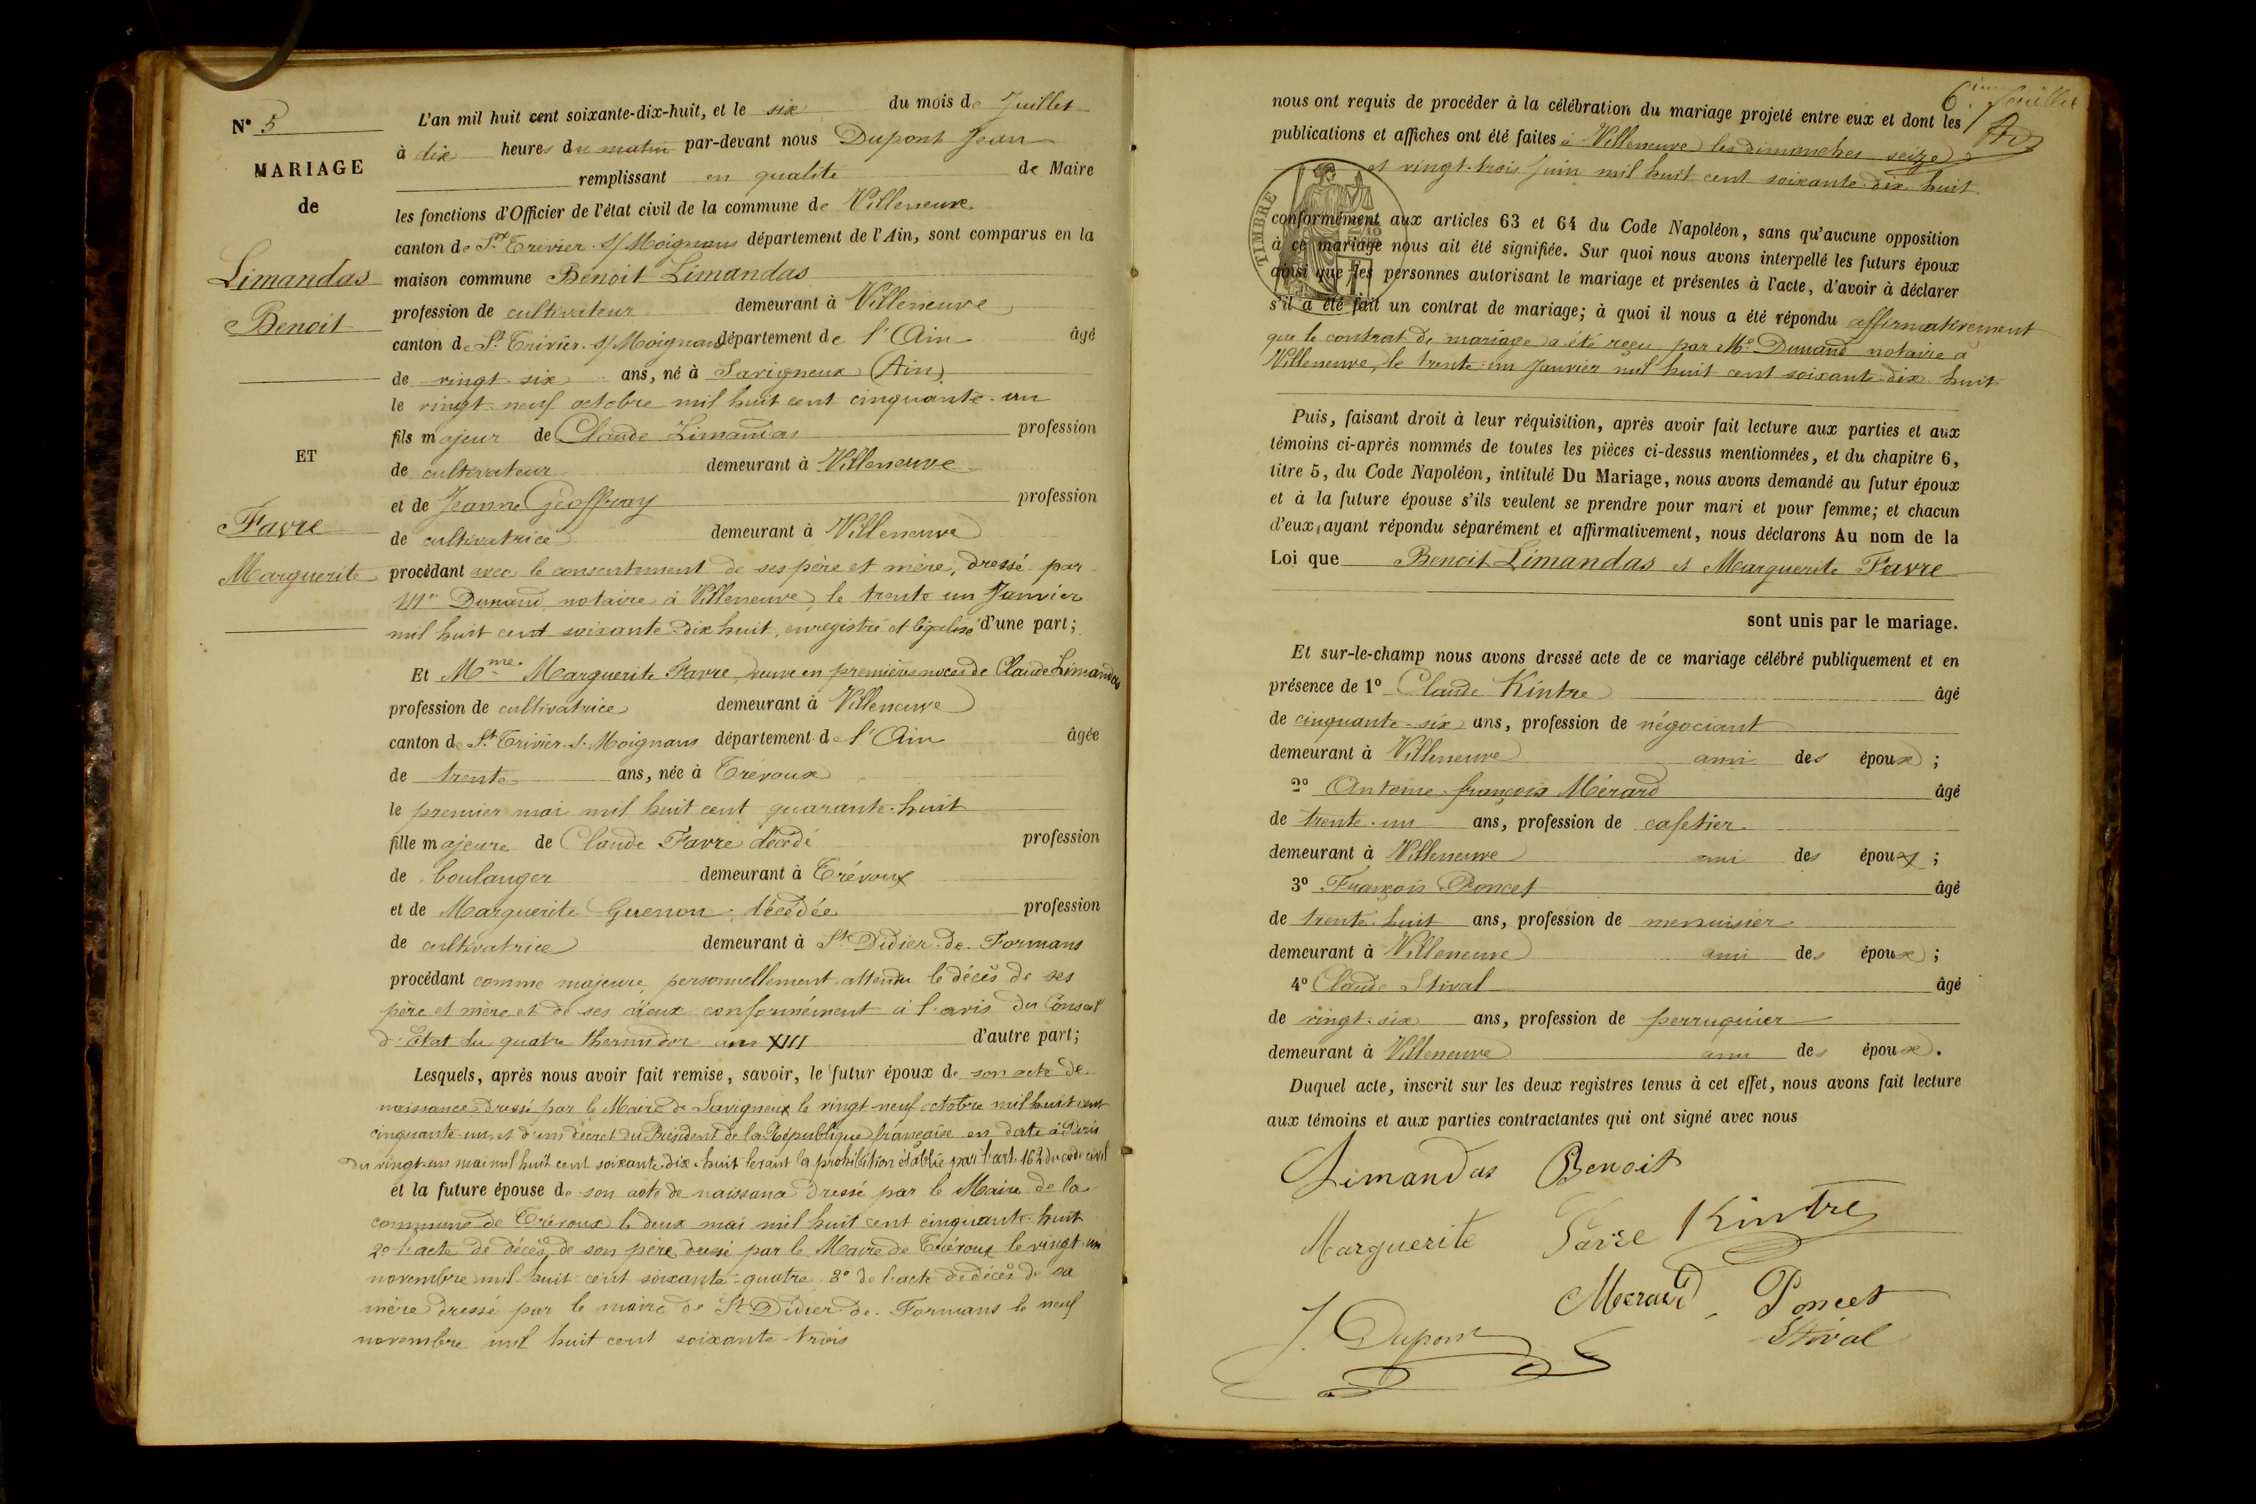 N° 5
MARIAGE
de
Limandas
Benoit
ET
Favre
Marguerite
L'an mil huit cent soixante-dix-huit, et le six du mois de Juillet
à dix heures du matin par-devant nous Dupont Jean
remplissant en qualité de Maire
les fonctions d'Officier de l'état civil de la commune de Villeneuve
canton de St Trivier s/ Moignans département de l'Ain, sont comparus en la
maison commune Benoit Limandas
profession de cultivateur demeurant à Villeneuve
canton de St Trivier s/ Moignans département de l'Ain âgé
de vingt-six ans, né à Savigneux (Ain)
le vingt-neuf octobre mil huit cent cinquante-un
fils majeur de Claude Limandas profession
de cultivateur demeurant à Villeneuve
et de Jeanne Geoffray profession
de cultivatrice demeurant à Villeneuve
procédant avec le consentement de ses père et mère, dressé par
Me Dunand notaire à Villeneuve, le trente un Janvier
mil huit cent soixante-dix huit, enregistré et légalisé d'une part;
Et Mme Marguerite Favre, veuve en premières noces de Claude Limandas
profession de cultivatrice demeurant à Villeneuve
canton de St Trivier s. Moignans département de l'Ain âgée
de trente ans, née à Trévoux
le premier mai mil huit cent quarante-huit
fille majeure de Claude Favre décédé profession
de boulanger demeurant à Trévoux
et de Marguerite Guenon, décédée profession
de cultivatrice demeurant à St Didier-de-Formans
procédant comme majeure, personnellement attendu le décès de ses
père et mère et de ses aïeux conformément à l'avis du Conseil
d'Etat du quatre thermidor an XIII d'autre part;
Lesquels, après nous avoir fait remise, savoir, le futur époux de son acte de
naissance dressé par le Maire de Savigneux le vingt-neuf octobre mil huit cent
cinquante-un, et d'un décret du Président de la République française en date à Paris
du vingt-un mai mil huit cent soixante-dix-huit levant la prohibition établie par l'art. 162 du code civil
et la future épouse de son acte de naissance dressé par le Maire de la
commune de Trévoux le deux mai mil huit cent cinquante-huit
2° l'acte de décès de son père dressé par le Maire de Trévoux le vingt-un
novembre mil huit cent soixante-quatre 3° de l'acte de décès de sa
mère dressé par le maire de St Didier-de-Formans le neuf
novembre mil huit cent soixante-trois
6 Juillet
nous ont requis de procéder à la célébration du mariage projeté entre eux et dont les
publications et affiches ont été faites à Villeneuve les dimanches seize
et vingt-trois Juin mil huit cent soixante-dix-huit
TIMBRE
conformément aux articles 63 et 64 du Code Napoléon, sans qu'aucune opposition
à ce mariage nous ait été signifiée. Sur quoi nous avons interpellé les futurs époux
ainsi que les personnes autorisant le mariage et présentes à l'acte, d'avoir à déclarer
s'il a été fait un contrat de mariage; à quoi il nous a été répondu affirmativement
que le contrat de mariage a été reçu par Me Dunand notaire à
Villeneuve, le trente-un Janvier mil huit cent soixante-dix huit
Puis, faisant droit à leur réquisition, après avoir fait lecture aux parties et aux
témoins ci-après nommés de toutes les pièces ci-dessus mentionnées, et du chapitre 6,
titre 5, du Code Napoléon, intitulé Du Mariage, nous avons demandé au futur époux
et à la future épouse s'ils veulent se prendre pour mari et pour femme; et chacun
d'eux, ayant répondu séparément et affirmativement, nous déclarons Au nom de la
Loi que Benoit Limandas et Marguerite Favre
sont unis par le mariage.
Et sur-le-champ nous avons dressé acte de ce mariage célébré publiquement et en
présence de 1° Claude Kintre âgé
de cinquante-six ans, profession de négociant
demeurant à Villeneuve ami des époux ;
2° Antoine-françois Mérard âgé
de trente-un ans, profession de cafetier
demeurant à Villeneuve ami des époux ;
3° François Poncet âgé
de trente-huit ans, profession de menuisier
demeurant à Villeneuve ami des époux ;
4° Claude Stival âgé
de vingt-six ans, profession de perruquier
demeurant à Villeneuve ami des époux.
Duquel acte, inscrit sur les deux registres tenus à cet effet, nous avons fait lecture
aux témoins et aux parties contractantes qui ont signé avec nous
Limandas Benoit
Marguerite Favre Kintre
Merard Poncet
J. Dupont Stival